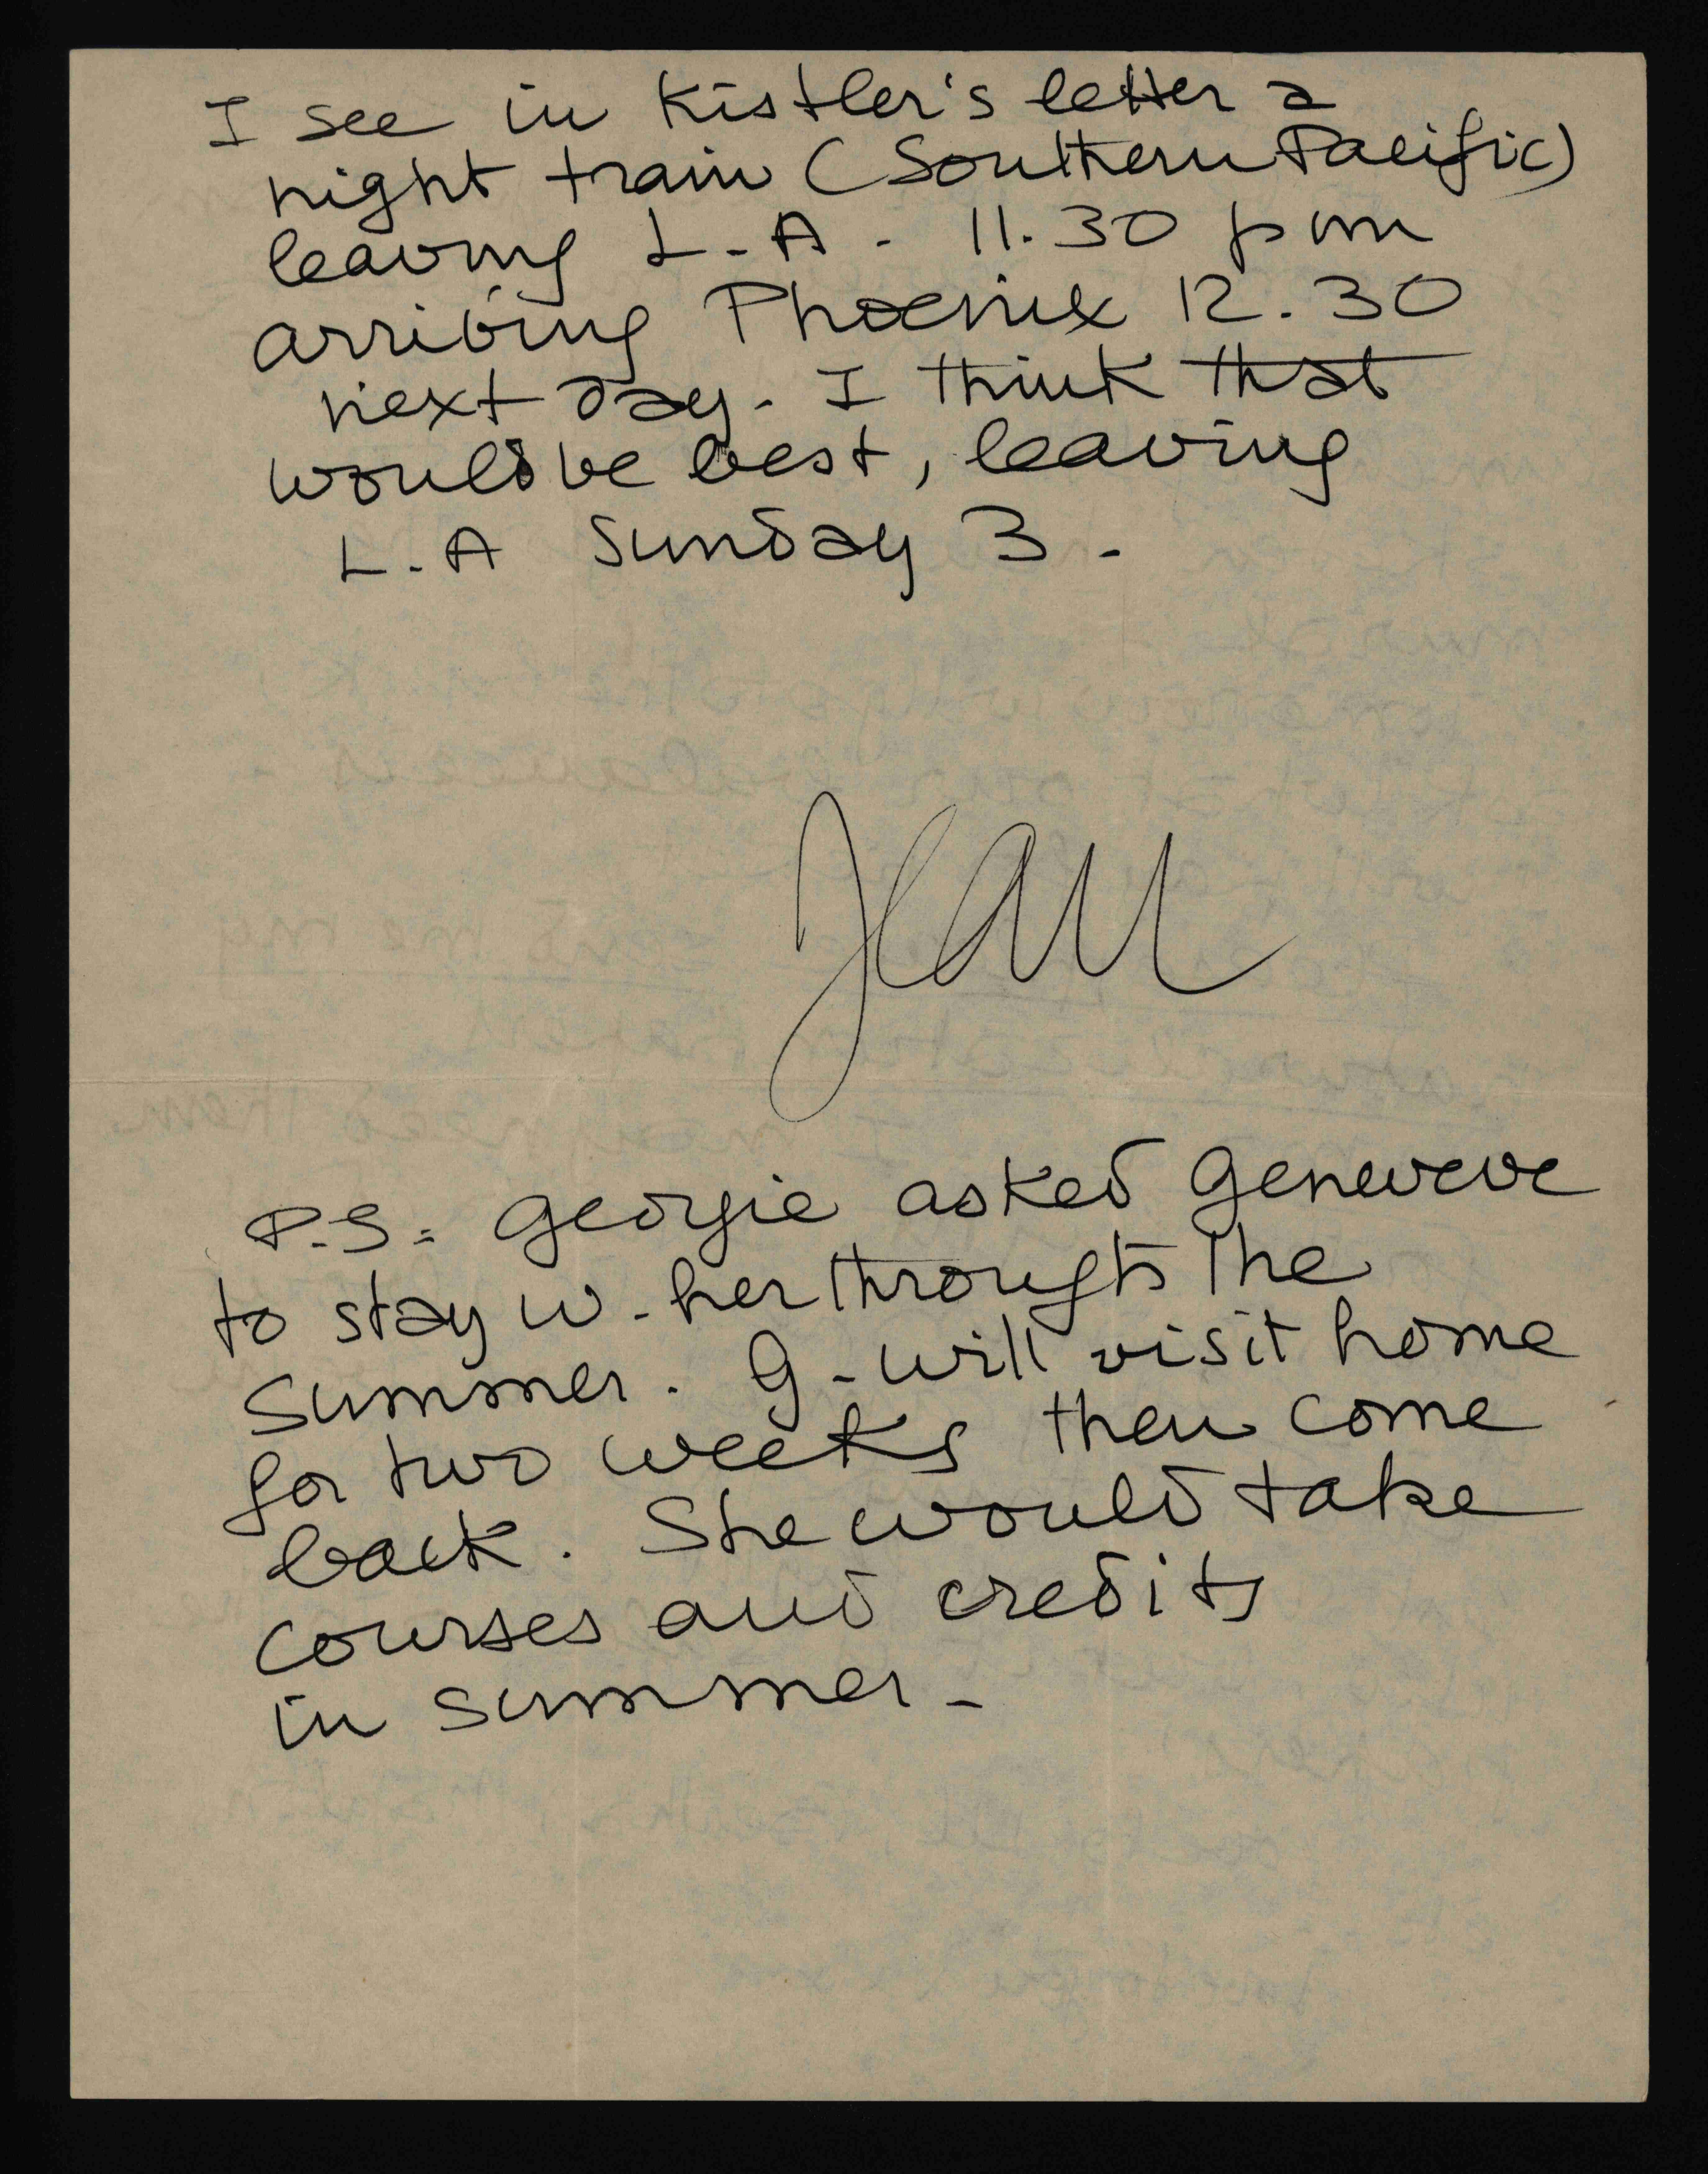 I see in Kistler's letter a
night train (Southern Pacific)
leaving L.A. 11.30 pm
arriving Phoenix 12.30
next day. I think that
would be best, leaving
L.A Sunday 3.
Jean
P.S. Georgie asked Genevieve
to stay w. her through the
summer. G. will visit home
for two weeks then come
back. She would take
courses and credits
in summer.